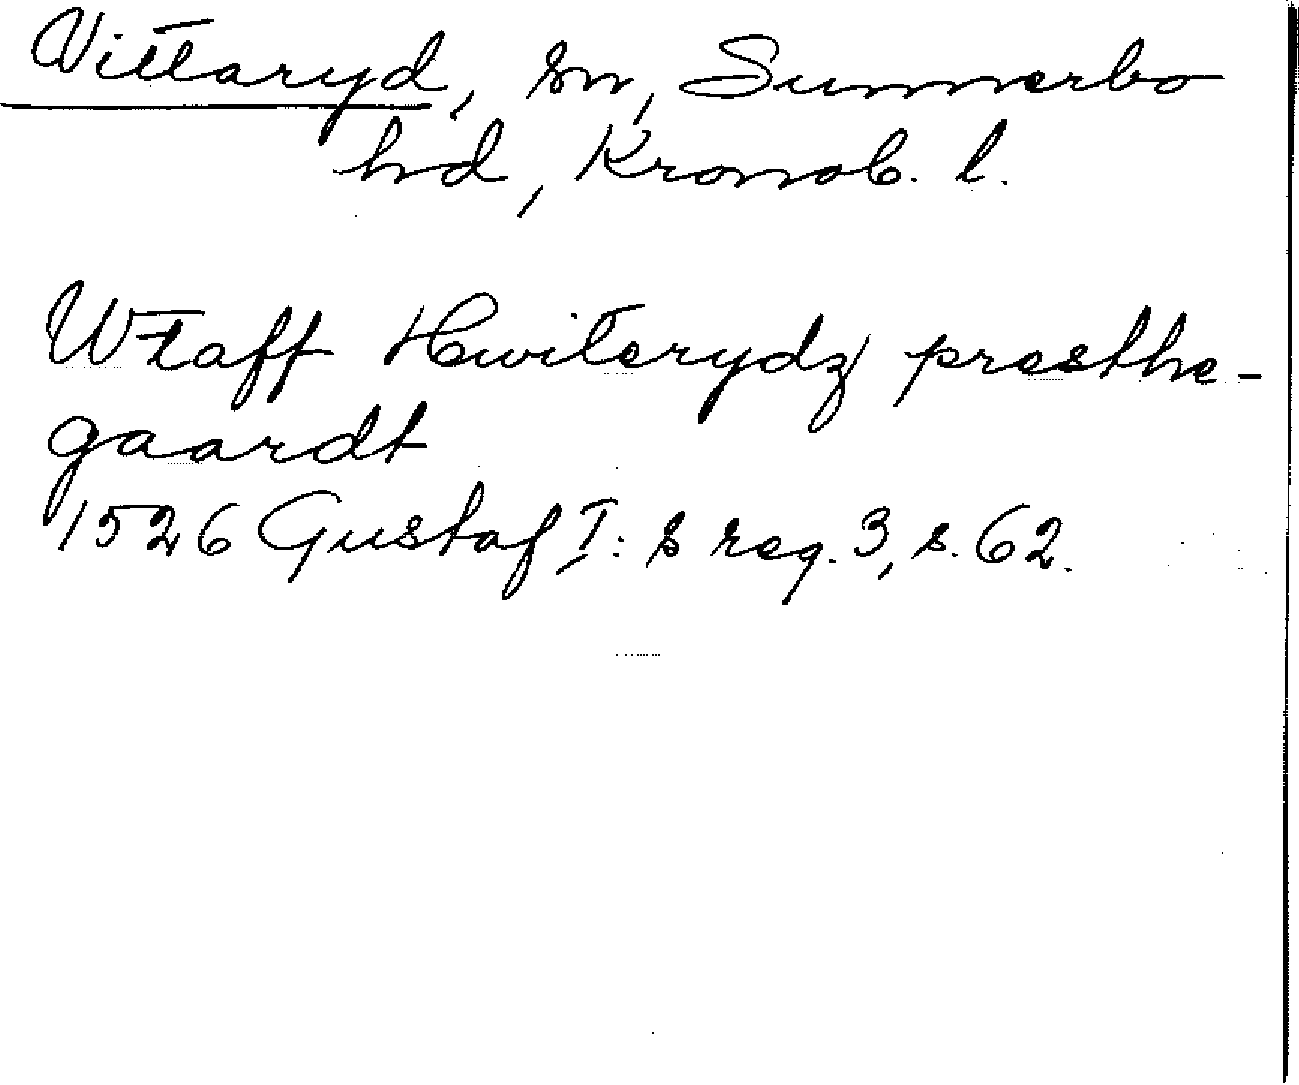 Vittaryd, sn, Sunnerbo
hd, Kronob. l.
Wtaff Hwiterydz presthe-
gaardt
1526 Gustaf I:s reg. 3, s. 62.